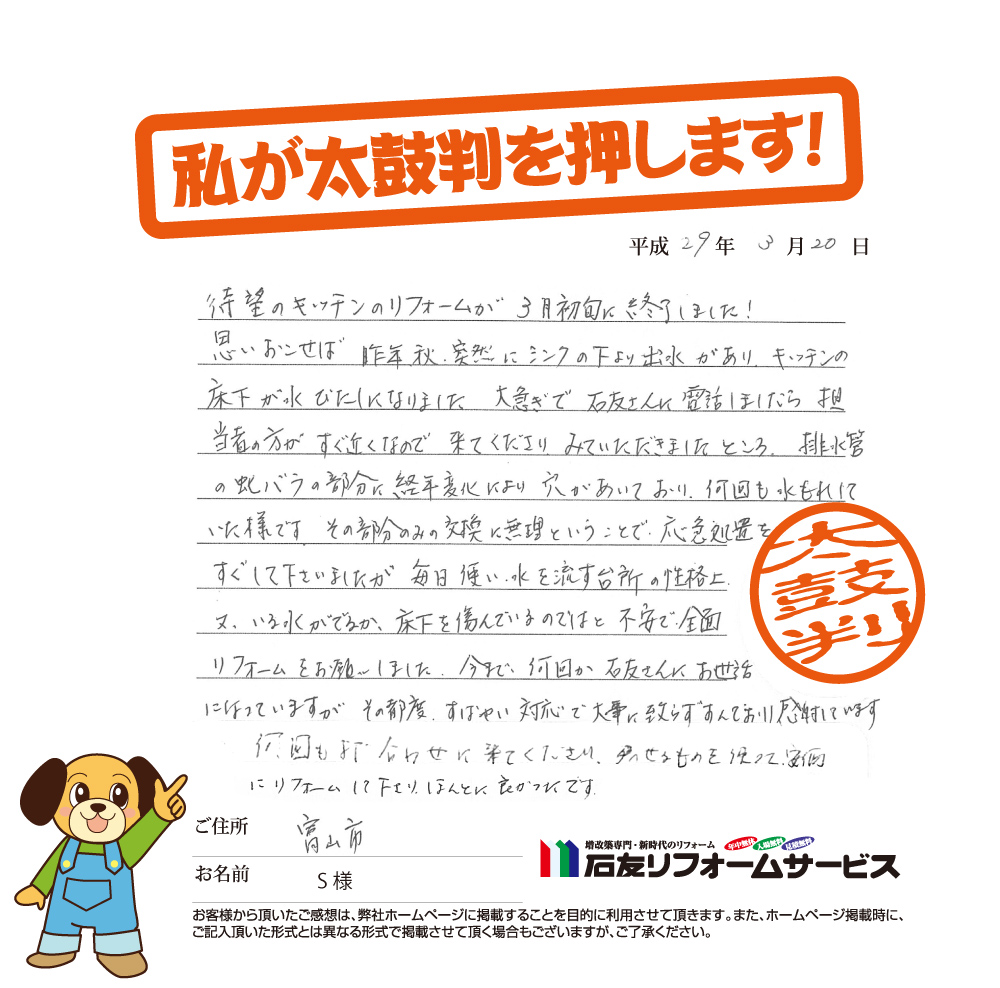 私が太鼓判を押します!
平成 29 年 3 月 20 日
待望のキッチンのリフォームが 3月初旬に終了しました!
思いおこせば 昨年秋、突然にシンクの下より出水があり、キッチンの
床下が水びたしになりました 大急ぎで石友さんに電話しましたら 担
当者の方がすぐ近くなので 来てくださり みていただきましたところ、排水管
の蛇バラの部分に経年変化により穴があいており、何回も水もれして
いた様です その部分のみの交換は無理ということで、応急処置を
すぐして下さいましたが 毎日使い、水を流す台所の性格上、
又、いつ水がでるか、床下を傷んでいるのではと 不安で、全面
リフォームをお願いしました。今まで、何回か石友さんにお世話
になっていますが その都度、すばやい対応で大事に致らずすんでおり感謝しています
何回も打合わせに来てくださり、残せるものを使って、安価
にリフォームして下さり、ほんとに良かったです。
太鼓判
ご住所 富山市
お名前 S様
増改築専門・新時代のリフォーム 年中無休 入場無料 見積無料
石友リフォームサービス
お客様から頂いたご感想は、弊社ホームページに掲載することを目的に利用させて頂きます。また、ホームページ掲載時に、
ご記入頂いた形式とは異なる形式で掲載させて頂く場合もございますが、ご了承ください。